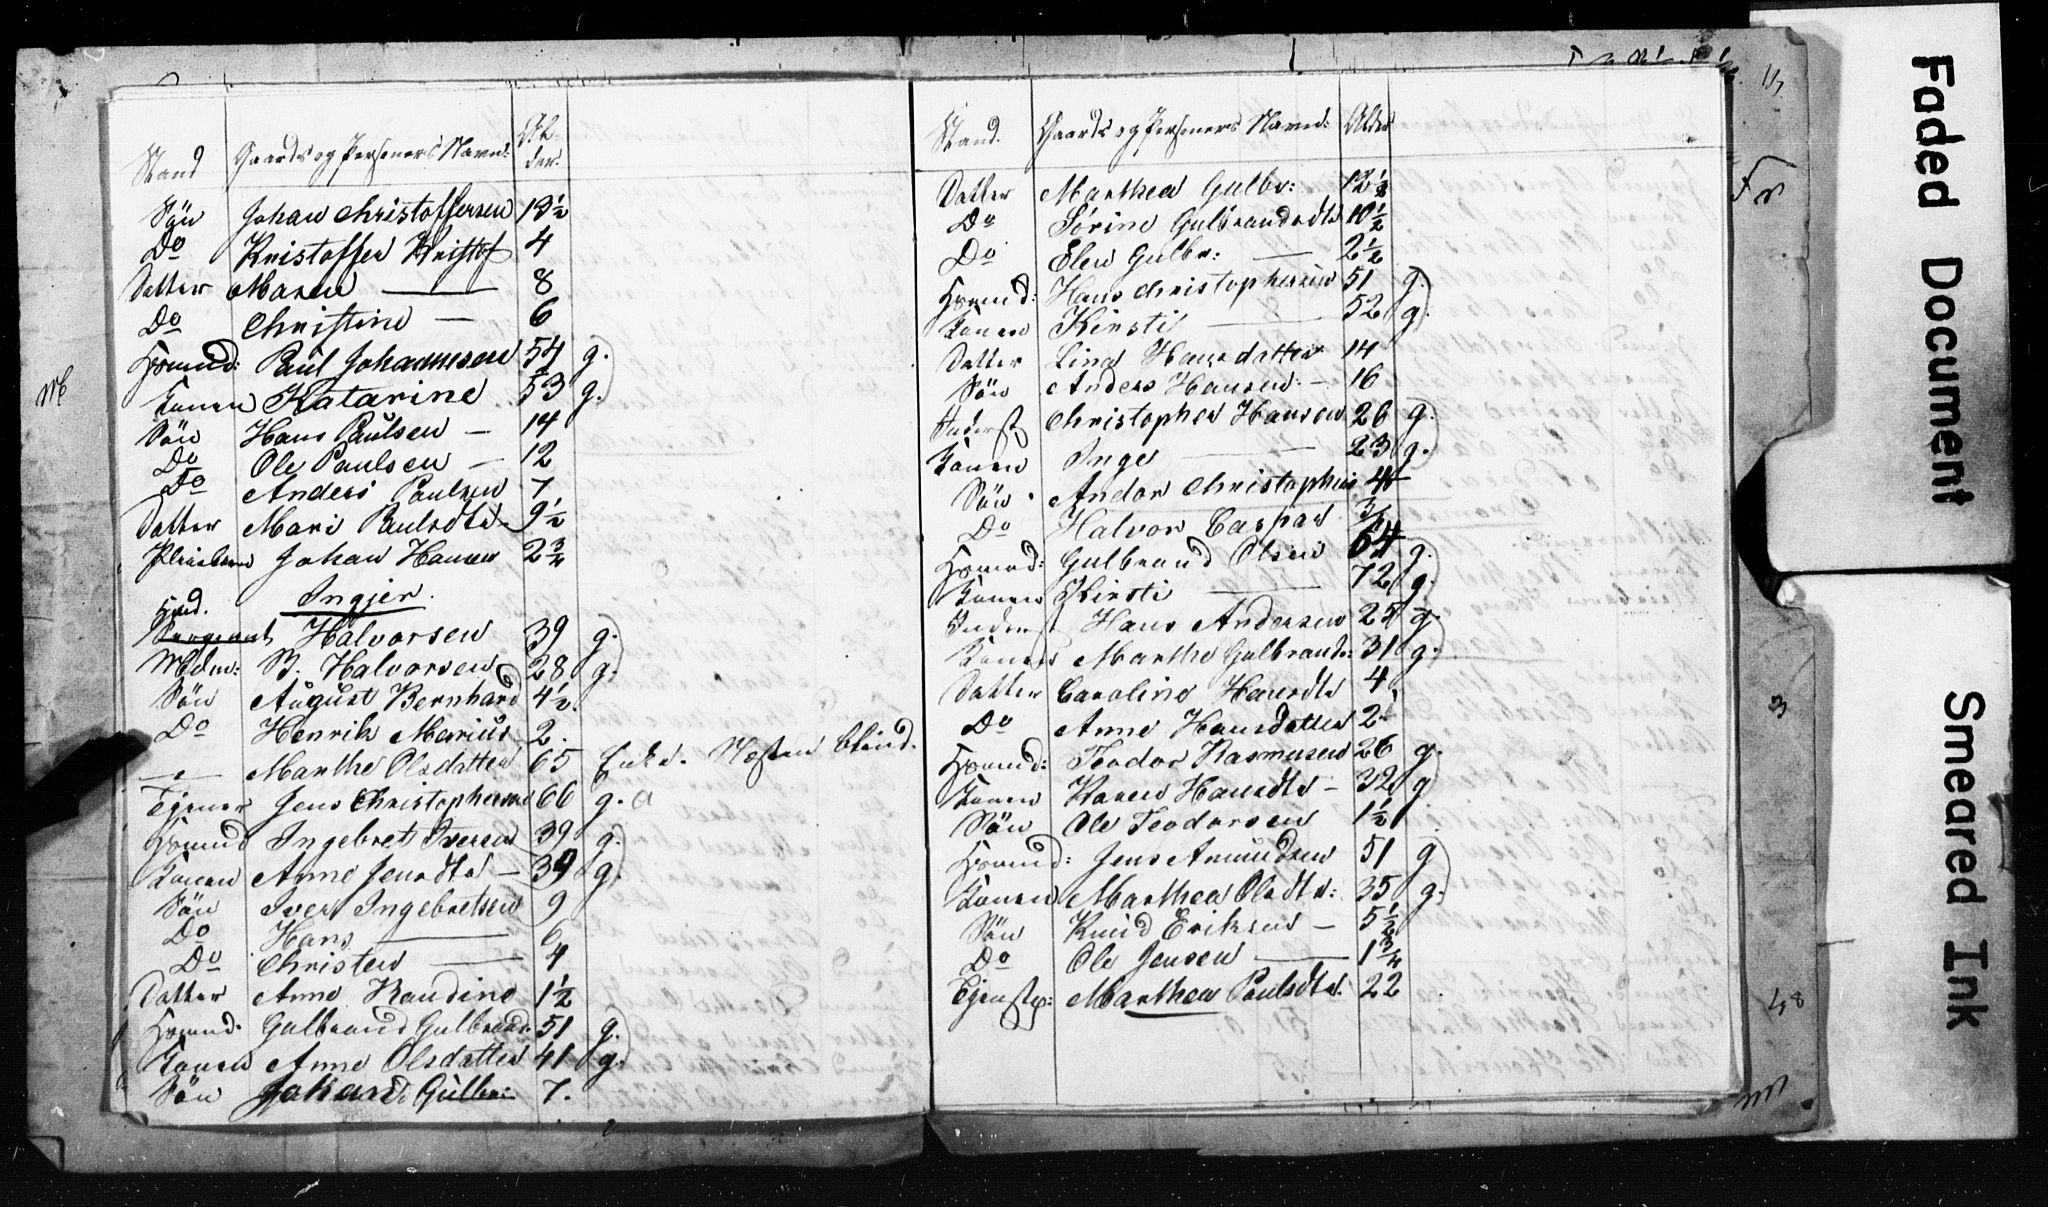 Stand Gaards og Personers Navne: Al-
der.
Sön Johan Christoffersen 13½
Do Kristoffer Kristof 4
Datter Maren — 8
Do Christine — 6
Hsmnd: Paul Johannesen 54 g.
Konen Katarine 53 g.
Sön Hans Paulsen — 14
Do Ole Paulsen — 12
Do Anders Paulsen 7
Datter Mari Paulsdtr 9½
Pleiebarn Johan Hansen 2¾
Ingjer.
Sergeant Halvorsen 39 g.
Mdm: B. Halvorsen 28 g.
Sön August Bernhard 4½
Do Henrik Marius 2.
Marthe Olsdatter 65 Enke. Næsten blind.
Ejener Jens Christophersen 66 g. a
Hsmnd Ingebret Iversen 39 g.
Konen Anne Jensdtr — 39 g.
Sön Iver Ingebretsen 9
Do Hans — 6
Do Christen — 4
Datter Anne Randine 1½
Hsmnd. Gulbrand Gulbrands 51 g.
Konen Anne Olsdatter 41 g.
Sön Johan Gulbr: 7.
Stand. Gaards og Personers Navne: Alder
Datter Marthea Gulbr: 12½
Do Sörine Gulbrandsdtr 10½
Do Elen Gulbr: — 2½
Hsmnd: Hans Christophersen 51 g.
Konen Kirsti — 52 g.
Datter Lina Hansdatter 14
Sön Anders Hansen — 16
Inderst Christopher Hansen 26 g.
Konen Inge — 23 g.
Sön Andor Christophers 4
Do Halvor Caspar
Hsmnd: Gulbrand Olsen 64 g.
Konen Kirsti — 72 g.
Inderst Hans Andersen 25 g.
Konen Marthe Gulbrands: 31 g.
Datter Caroline Hansdtr 4
Do Anne Hansdatter 2
Hsmnd: Teodor Rasmusen 26 g.
Konen Karen Hansdtr — 32 g
Sön Ole Teodorsen 1½
Hsmnd: Jens Amundsen 51 g
Konen Marthea Olsdtr: 35 g.
Sön Knud Eriksen — 5½
Do Ole Jensen — 1¾
Tjenstp: Marthea Paulsdtr. 22
Faded Document
Smeared Ink